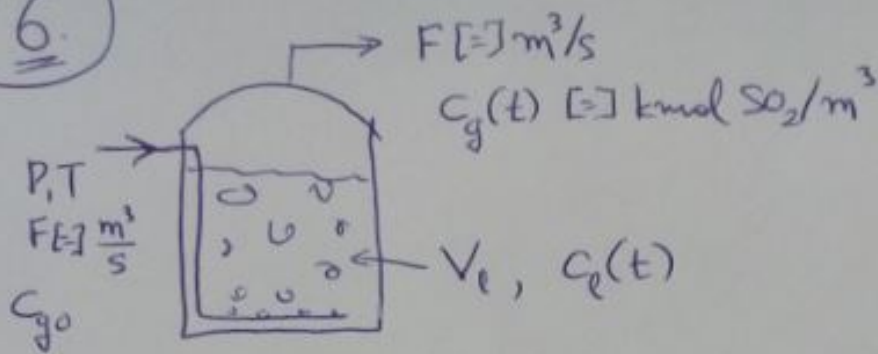 6.
F [=] m³/s
C_g(t) [=] kmol SO₂/m³
P,T
F[=] m³/s
C_go
V_l, C_l(t)